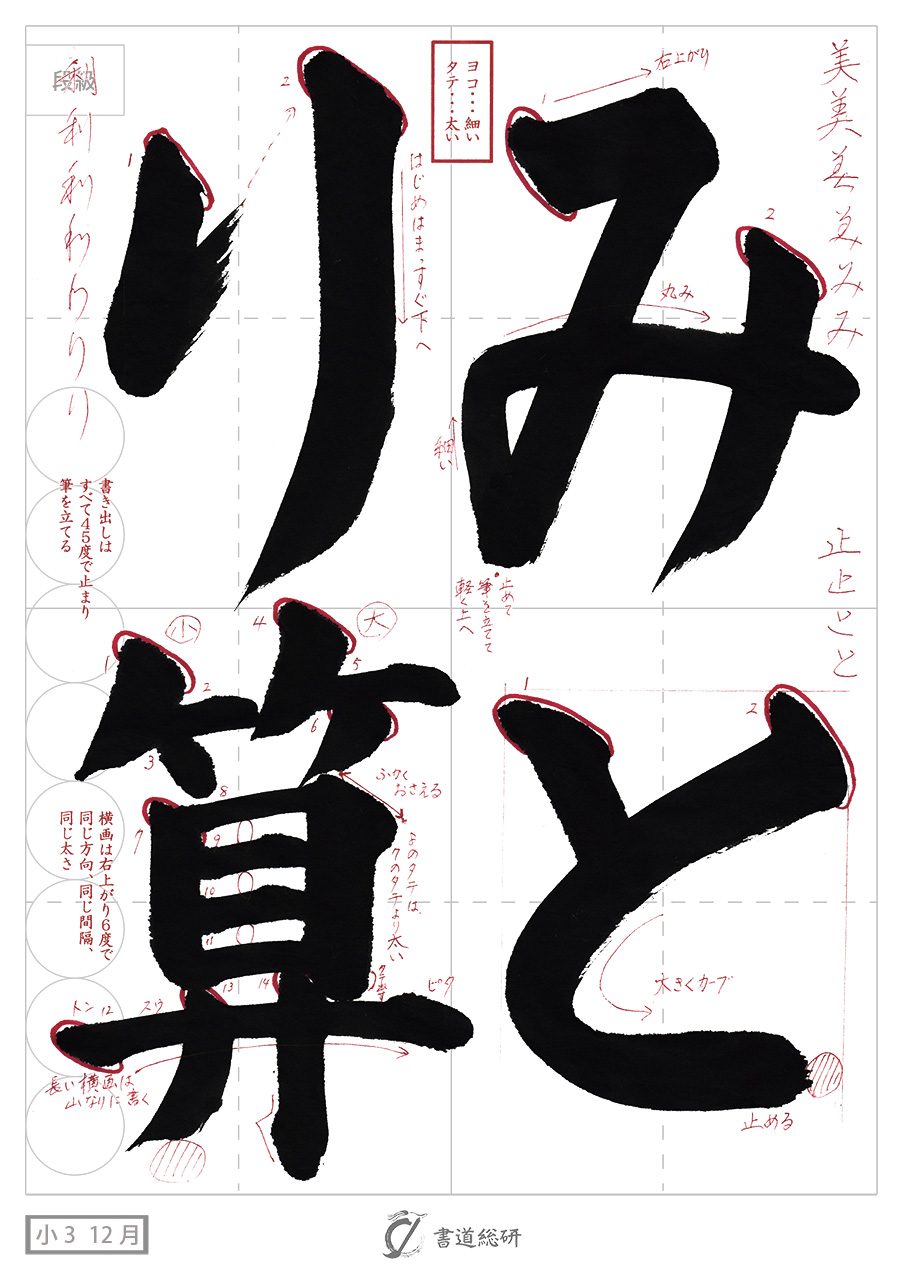 美美美みみみ
止止とと
みと
り算
1
右上がり
2
丸み
細い
止めて
筆を立てて
軽く上へ
ヨコ…細い
タテ…太い
1
2
大きくカーブ
止める
2
はじめはまっすぐ下へ
1
段級
利利利利りりり
書き出しは
すべて45度で止まり
筆を立てる
小
大
1
2
3
4
5
6
7
8
9
10
11
12
13
14
ふかく
おさえる
8のタテは、
7のタテより太い
トン
スウ
ピタ
長い横画は
山なりに書く
横画は右上がり6度で
同じ方向、同じ間隔、
同じ太さ
小3 12月
書道総研